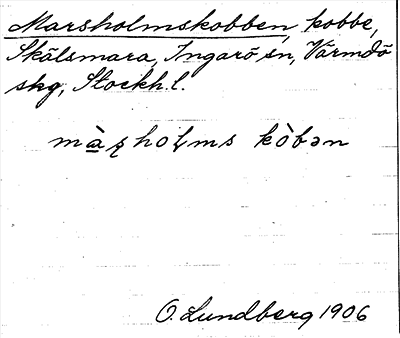 Marsholmskobben, kobbe,
Skälsmara, Ingarö sn, Värmdö
skg, Stockh.l.
màʂhoɭms kòbən
O. Lundberg 1906